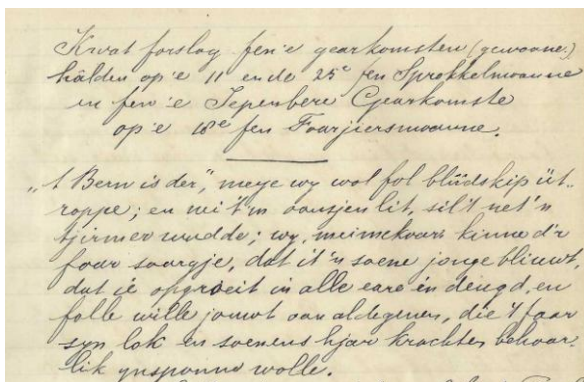 Kwat forslag fen'e gearkomsten (gewoane)
hâlden op'e 11e en de 25e fen Sprokkelmoanne
en fen'e Iepenbere Gearkomste
op'e 18e fen Foarjiersmoanne.
„'t Bern is der", meye wy wol fol blîidskip út-
roppe; en nei 't 'm oansjen lit, sil 't net 'n
tjirmer wudde; wy, meimekoar kinne d'r
foar soargje, dat it 'n soene jonge bliuwt,
dat it opgroeit in alle eare in deugd, en
folle wille jouwt oan aldegenen, die 't faar
syn lok en soenens hjar krachten behoar-
lik ynspanne wolle.